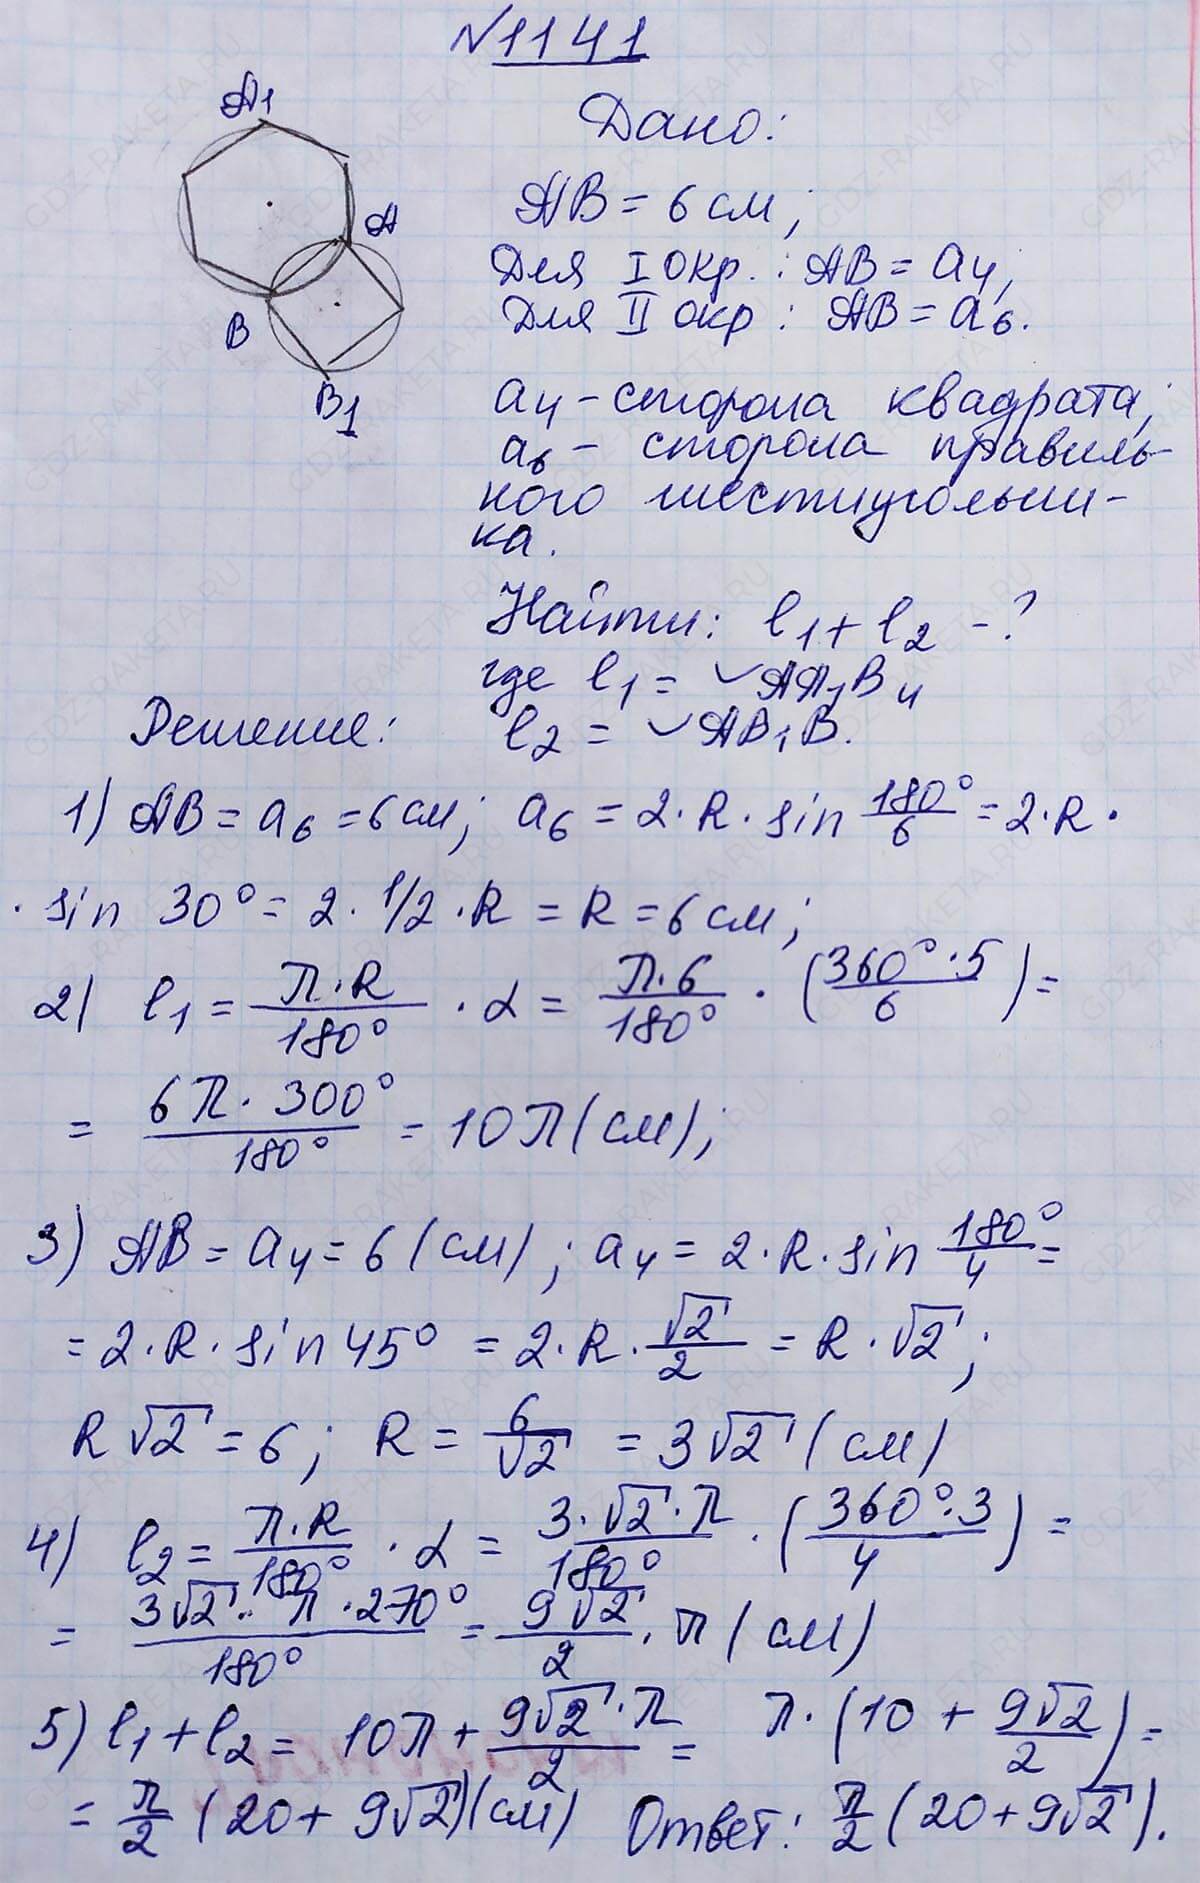 №1141
A1
Дано:
AB = 6 см;
A
Для I окр.: AB = a4;
Для II окр: AB = a6.
B
B1
a4 - сторона квадрата;
a6 - сторона правиль-
ного шестиугольни-
ка.
Найти: l1 + l2 - ?
где l1 = ◡AA1B
Решение: l2 = ◡AB1B.
1) AB = a6 = 6 см; a6 = 2·R·sin 180°/6 = 2·R·
·sin 30° = 2·1/2·R = R = 6 см;
2) l1 = π·R/180° · α = π·6/180° · (360°·5/6) =
= 6π·300°/180° = 10π (см);
3) AB = a4 = 6 (см); a4 = 2·R·sin 180°/4 =
= 2·R·sin 45° = 2·R·√2/2 = R·√2;
R√2 = 6; R = 6/√2 = 3√2 (см)
4) l2 = π·R/180° · α = 3·√2·π/180° · (360°·3/4) =
= 3√2·π·270°/180° = 9√2/2 · π (см)
5) l1 + l2 = 10π + 9√2·π/2 = π·(10 + 9√2/2) =
= π/2 (20 + 9√2) (см) Ответ: π/2 (20 + 9√2).